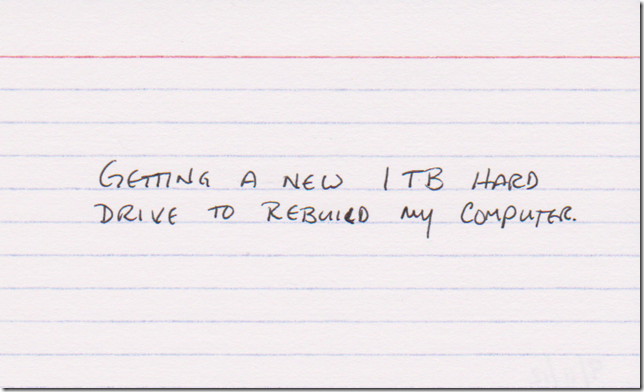 GETTING A NEW 1 TB HARD
DRIVE TO REBUILD MY COMPUTER.